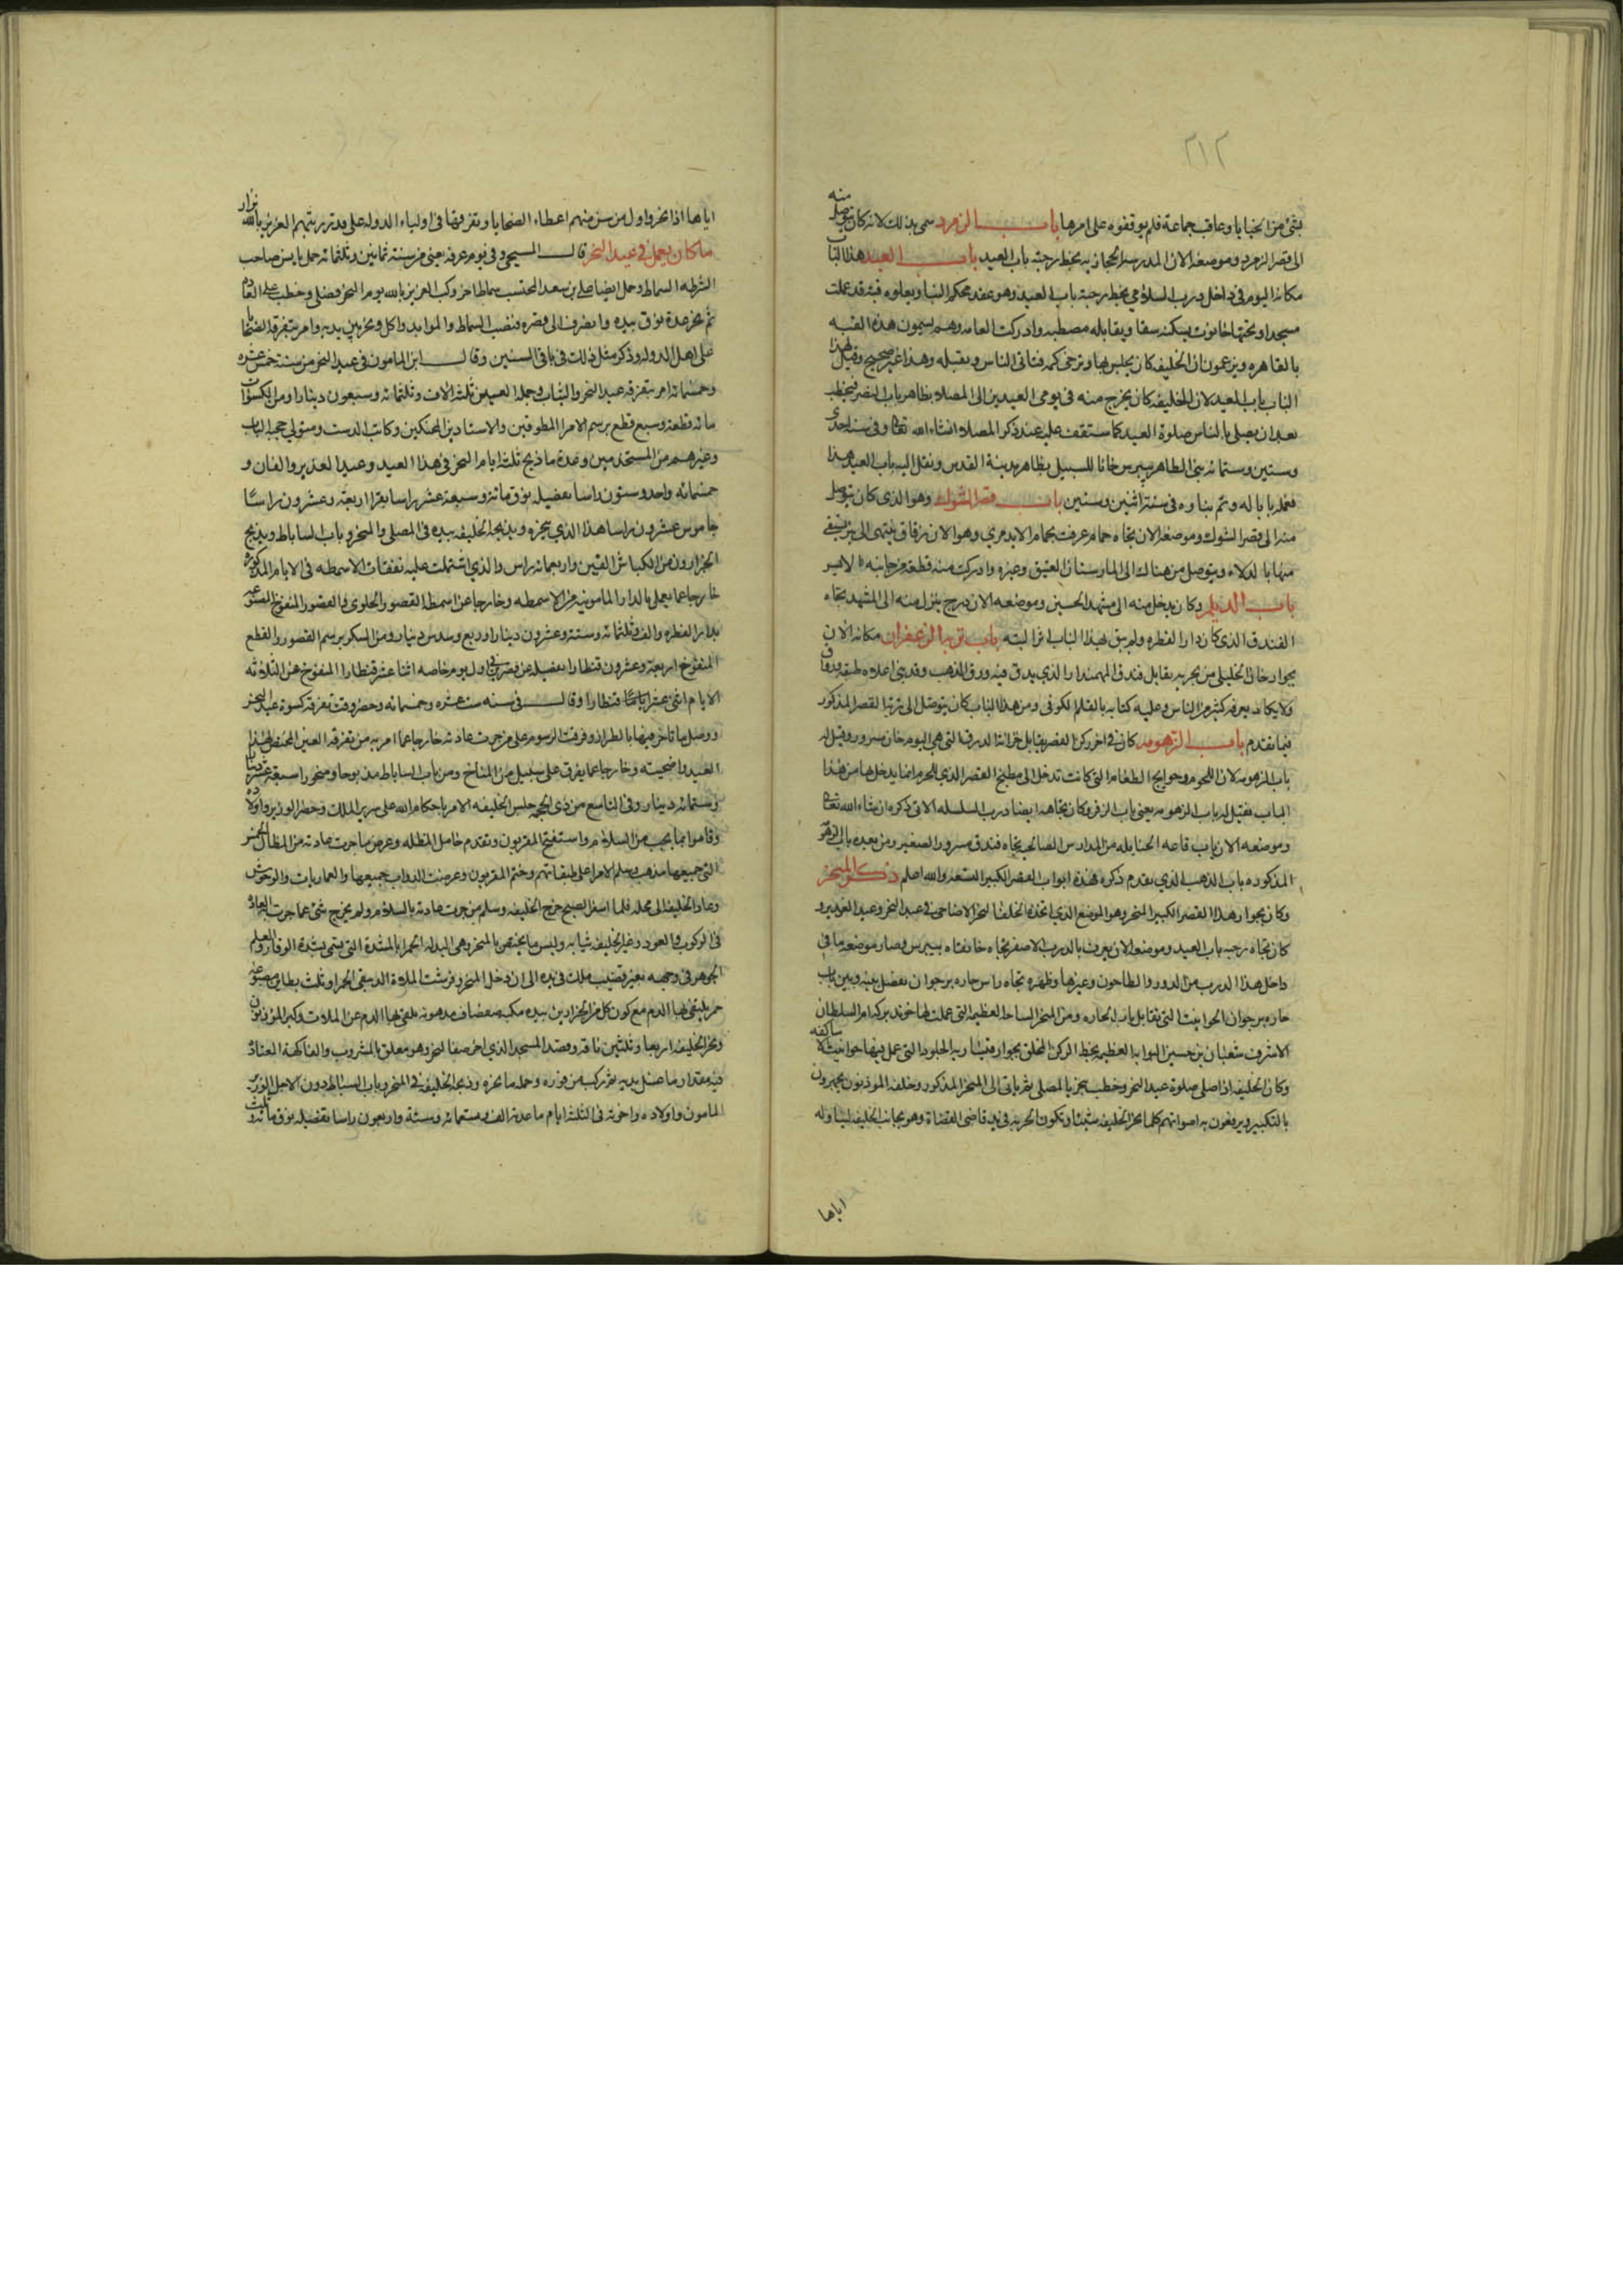 ٢١٢
بشئ من الخبايا وعاقب جماعة فلم يوقفوه على امرها باب الزمرد سمى بذلك لانه كان يتوصل منه
الى قصر الزمرد وموضعه الان المدرسة الحجازيه بخط رحبة باب العيد باب العيد هذا الباب
مكانه اليوم فى داخل درب السلامى بخط رحبة باب العيد وهو عقد محكم البنا ويعلوه قبة قد عملت
مسجدا وتحتها حانوت يسكنه سقا ويقابله مصطبه وادركت العامه وهم يسمون هذه القبه
بالقاهره ويزعمون ان الخليفه كان يجلس بها ويرخى كمه فتاتى الناس وتقبله وهذا غير صحيح وقيل لهذا
الباب باب العيد لان الخليفه كان يخرج منه فى يومى العيدين الى المصلا بظاهر باب النصر فيخطب
بعد ان يصلى بالناس صلوة العيد كما ستقف عليه عند ذكر المصلا ان شاء الله تعالى وفى سنة احدى
وستين وستمائه بنى الظاهر بيبرس خانا للسبيل بظاهر مدينة القدس ونقل اليه باب العيد هذا
فعمله بابا له وتم بناوه فى سنة اثنين وستين باب قصر الشوك وهو الذى كان يتوصل
منه الى قصر الشوك وموضعه الان تجاه حمام عرفت بحمام الايدمرى وهو الان زقاق ينتهى الى بير يسقى
منها بالدلاء ويتوصل من هنالك الى المارستان العتيق وغيره وادركت منه قطعة من جانبه الايسر
باب الديلم وكان يدخل منه الى مشهد الحسين وموضعه الان درج ينزل منه الى المشهد تجاه
الفندق الذى كان دار الفطره ولم يبق لهذا الباب اثر البته باب تربة الزعفران مكانه الان
بجوار خان الخليلى من بحريه مقابل فندق المهمندار الذى يدق فيه ورق الذهب وقد بنى اعلاه طبقة ورواق
ولا يكاد يعرفه كثير من الناس وعليه كتابه بالقلم الكوفى ومن هذا الباب كان يتوصل الى تربة القصر المذكور
فيما تقدم باب الزهومه كان فى اخر ركن القصر يقابل خزانة الدرق التى هى اليوم خان مسرور وقيل له
باب الزهومه لان اللحوم وحوايج الطعام التى كانت تدخل الى مطبخ القصر الذى للحوم انما يدخل بها من هذا
الباب فقيل له باب الزهومه يعنى باب الزفر وكان تجاهه ايضا درب السلسله الاتى ذكره ان شاء الله تعالى
وموضعه الان باب قاعه الحنابله من المدارس الصالحيه تجاه فندق مسرور الصغير ومن بعده باب الزهومه
المذكوره باب الذهب الذى تقدم ذكره فهذه ابواب القصر الكبير التسعه والله اعلم ذكر المنحر
وكان بجوار هذا القصر الكبير المنحر وهو الموضع الذى اتخذه الخلفا لنحر الاضاحى فى عيد النحر وعيد الغدير و
كان تجاه رحبه باب العيد وموضعه الان يعرف بالدرب الاصفر تجاه خانقاه بيبرس وصار موضعه ما فى
داخل هذا الدرب من الدور والطاحون وغيرها وظهره تجاه راس حاره برجوان يفصل بينه وبين باب
حاره برجوان الحوانيت التى تقابل باب الحاره ومن المنحر الساحه العظيمه التى عملت لها خوند بركه ام السلطان
الاشرف شعبان بن حسين البوابه العظيمه بخط الركن المخلق بجوار قيساريه الجلود التى عمل فيها حوانيت الاساكفه
وكان الخليفه اذا صلى صلوة عيد النحر وخطب ينحر بالمصلى ثم ياتى الى المنحر المذكور وخلفه الموذنون يجهرون
بالتكبير ويرفعون به اصواتهم كلما نحر الخليفه شيئا وتكون الحربه فى يد قاضى القضاة وهو بجانب الخليفه ليناوله
اياها
اياها اذا نحر واول من سن منهم اعطاء الضحايا وتفرقتها فى اولياء الدوله على قدر رتبهم العزيز بالله نزار
ما كان يعمل فى عيد النحر قال المسبحى وفى يوم عرفه يعنى من سنة ثمانين وثلثمائه حمل يانس صاحب
الشرطه السماط وحمل ايضا على بن سعد المحتسب سماطا اخر وركب العزيز بالله يوم النحر فصلى وخطب على العادة
ثم نحر عدة نوق بيده وانصرف الى قصره فنصب السماط والموايد واكل ونحر بين يديه وامر بتفرقة الضحايا
على اهل الدوله وذكر مثل ذلك فى باقى السنين وقال ابن المامون فى عيد النحر من سنة خمس عشره
وخمسمائه امر بتفرقه عيد النحر والهبات وجملة العين ثلثة الاف وثلثمائه وسبعون دينارا ومن الكسوات
مائه قطعة وسبع قطع برسم الامرا المطوقين والاستادين المحنكين وكاتب الدست ومتولى حجبة الباب
وغيرهم من المستخدمين وعدة ما ذبح ثلثة ايام النحر فى هذا العيد وعيد الغدير الفان و
خمسمائه واحد وستون راسا تفصيله نوق مائه وسبعة عشر راسا بقر اربعة وعشرون راسا
جاموس عشرون راسا هذا الذى ينحره ويذبحه الخليفه بيده فى المصلى والمنحر وباب الساباط ويذبح
الجزارون من الكباش الفين واربعمائه راس والذى اشتملت عليه نفقات الاسمطه فى الايام المذكوره
خارجا عما يعمل بالدار المامونيه من الاسمطه وخارجا عن اسمطة القصور الحلوى والقصور المنفوخ المصنوعه
بدار الفطره والف وثلثمائه وستة وعشرون دينارا وربع وسدس دينار ومن السكر برسم القصور والقطع
المنفوخ اربعة وعشرون قنطارا تفصيله عن قصرين فى اول يوم خاصه اثنا عشر قنطارا المنفوخ عن الثلاثه
الايام اثنى عشر قنطارا وقال فى سنه ست عشره وخمسمائه وحضر وقت تفرقه كسوة عيد النحر
ووصل ما تاخر فيها بالطراز وفرقت الرسوم على من جرت عادته خارجا عما امر به من تفرقه العين المختص بهذا
العيد واضحيته وخارجا عما يفرق على سبيل من المناخ ومن باب الساباط مذبوحا ومنحورا سبعة عشر دينارا
وستمائه دينار وفى التاسع من ذى الحجه جلس الخليفه الامر باحكام الله على سرير الملك وحضر الوزير واولاده
وقاموا بما يجب من السلام واستفتح المقربون وتقدم حامل المظله وعرض ما جرت عادته من المظال الخمس
التى جميعها مذهب وسلم الامرا على طبقاتهم وختم المقربون وعرضت الدواب جميعها والعماريات والوحوش
وعاد الخليفه الى محله فلما اسفر الصبح خرج الخليفه وسلم من جرت عادته بالسلام ولم يخرج شئ عما جرت به العاده
فى الركوب والعود وغير الخليفه ثيابه ولبس ما يختص بالمنحر وهى البدله الحمرا بالشدة التى تسمى بشدة الوقار والعلم
الجوهر فى وجهه بغير قضيب ملك فى يده الى ان دخل المنحر وفرشت الملاة الدبيقى الحمرا وثلث بطاين مصبوغه
حمر ليتقى بها الدم مع كون كل من الجزارين بيده مكبه صفصاف مدهونه يلقى بها الدم عن الملاة وكبر الموذنون
ونحر الخليفه اربعا وثلثين ناقة وقصد المسجد الذى اخر صف المنحر وهو معلق بالمشروب والفاكهه المعباة
فيه مقدار ما غسل يديه ثم ركب من فوره وجمله ما نحره وذبحه الخليفه فى المنحر وباب الساباط دون الاجل الوزير
المامون واولاده واخوته فى الثلثة ايام ما عدته الف وتسعمائه وستة واربعون راسا تفصيله نوق مائه وثلث